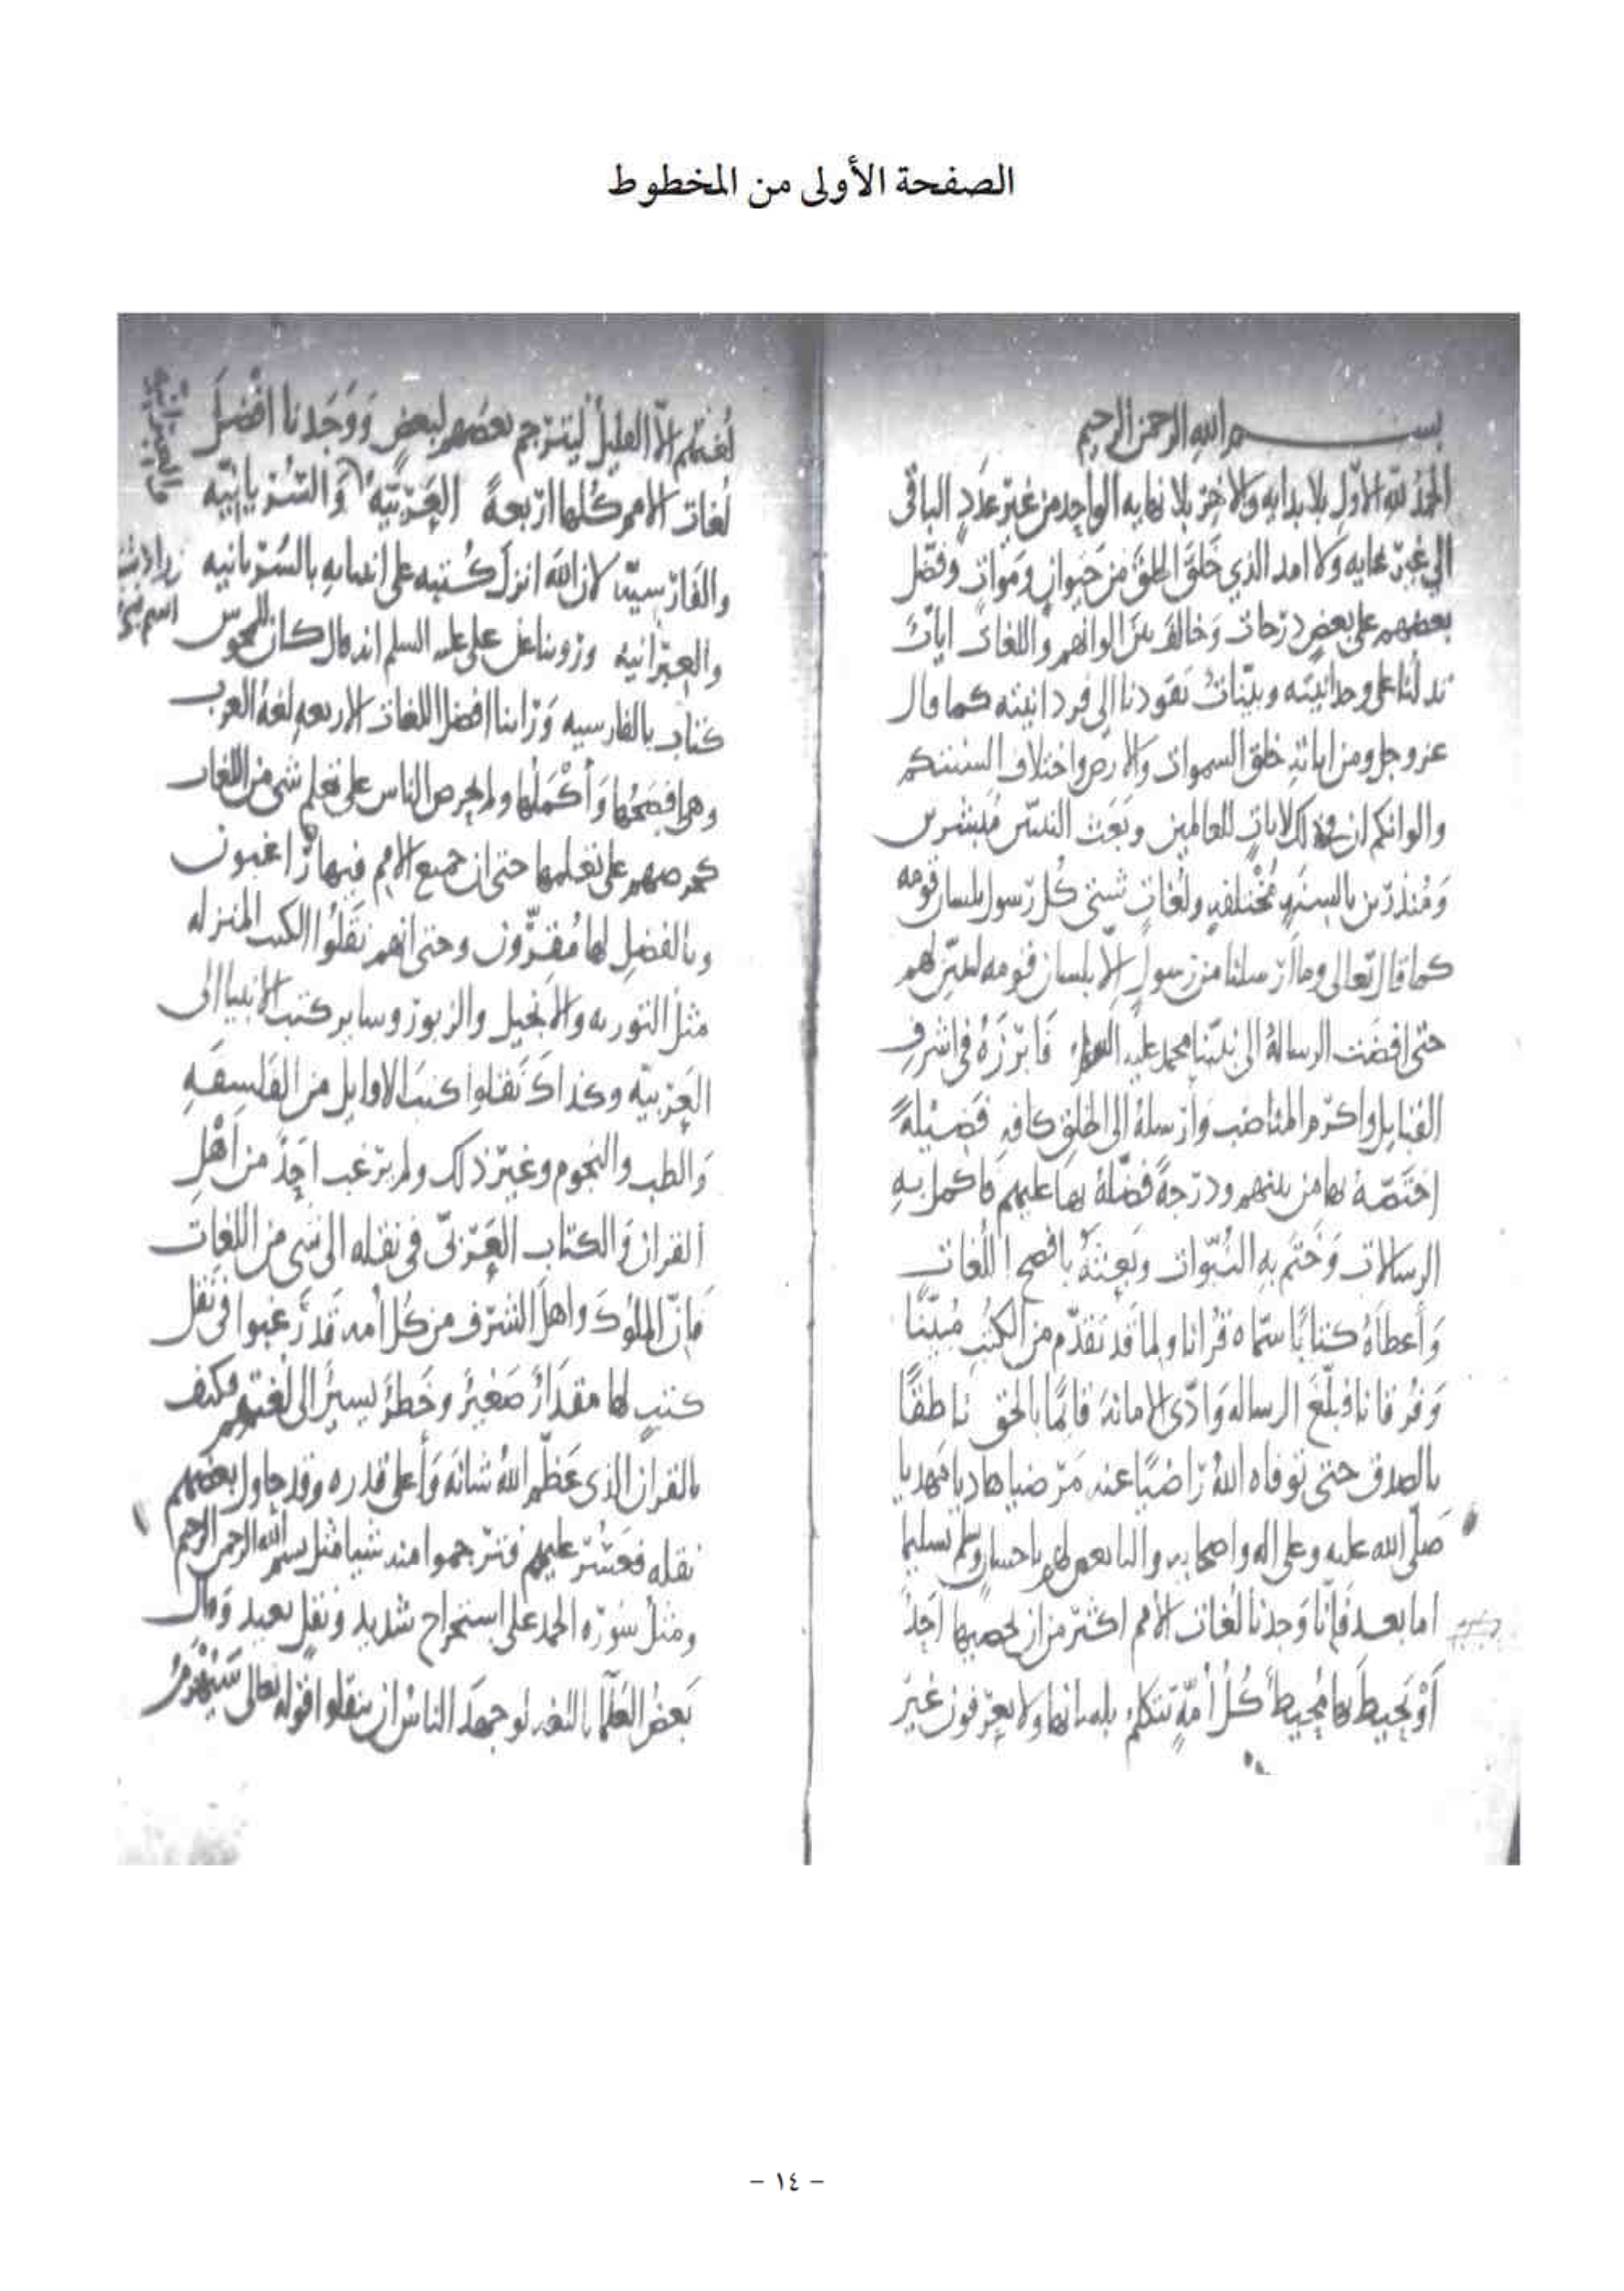 الصفحة الأولى من المخطوط
بسم الله الرحمن الرحيم
الحمد لله الأول بلا بدايه والآخر بلا نهايه الواحد من غير عدد الباقى
الى غير غايه ولا امد الذي خلق الخلق من حيوان وموات وفضل
بعضهم على بعض درجات وخالف بين الوانهم واللغات ايات
تدلنا على وحدانيته وبينات تقودنا الى فردانيته كما قال
عز وجل ومن اياته خلق السموات والارض واختلاف السنتكم
والوانكم ان في ذلك لايات للعالمين وبعث النبيين مبشرين
ومنذرين بالسنه مختلفه ولغات شتى كل رسول بلسان قومه
كما قال تعالى وما ارسلنا من رسول الا بلسان قومه ليبين لهم
حتى افضت الرسالة الى نبينا محمد عليه السلام فابرزه في اشرف
القبايل واكرم المناصب وارسله الى الخلق كافه فضيلة
اختصه بها من بينهم ودرجة فضله بها عليهم فاكمل به
الرسالات وختم به النبوات وبعثه بافصح اللغات
وأعطاه كتابا سماه قرانا ولما قد تقدم من الكتب مبينا
وفرقانا فبلغ الرساله وادى الامانة قائما بالحق ناطقا
بالصدق حتى توفاه الله راضيا عنه مرضيا هاديا مهديا
صلى الله عليه وعلى اله واصحابه والتابعين لهم باحسان وسلم تسليما
اما بعد فإنا وجدنا لغات الأمم اكثر من ان يحصيها احد
أو يحيط بها محيط كل أمة تتكلم بلسانها ولا يعرفون غير
لغتهم الا القليل ليترجم بعضهم لبعض ووجدنا افضل
لغات الامم كلها اربعة العربية والسريانية
والفارسية لان الله انزل كتبه على انبيايه بالسريانيه
والعبرانية وروينا عن علي عليه السلم انه قال كان للمجوس
كتاب بالفارسيه وراينا افضل اللغات الاربعه لغة العرب
وهي افصحها وأكملها ولم يحرص الناس على تعلم شي من اللغات
كحرصهم على تعلمها حتى ان جميع الامم فيها راغبون
وبالفضل لها مقرون وحتى انهم نقلوا الكتب المنزله
مثل التوريه والانجيل والزبور وساير كتب الانبيا الى
العربيه وكذاك نقلوا كتب الاوايل من الفلسفه
والطب والنجوم وغير ذلك ولم يرغب احد من اهل
القران والكتاب العربي في نقله الى شي من اللغات
فان الملوك واهل الشرف من كل أمه قد رغبوا في نقل
كتب لها مقدار صغير وخطر يسير الى لغتهم فكيف
بالقران الذي عظم الله شانه وأعلى قدره وقد حاول بعضهم
نقله فعسر عليهم فترجموا منه شيا مثل بسم الله الرحمن الرحيم
ومثل سورة الحمد على استخراج شديد ونقل بعيد وقال
بعض العلما بالنغه لو جهد الناس ان ينقلوا قوله تعالى
– ١٤ –